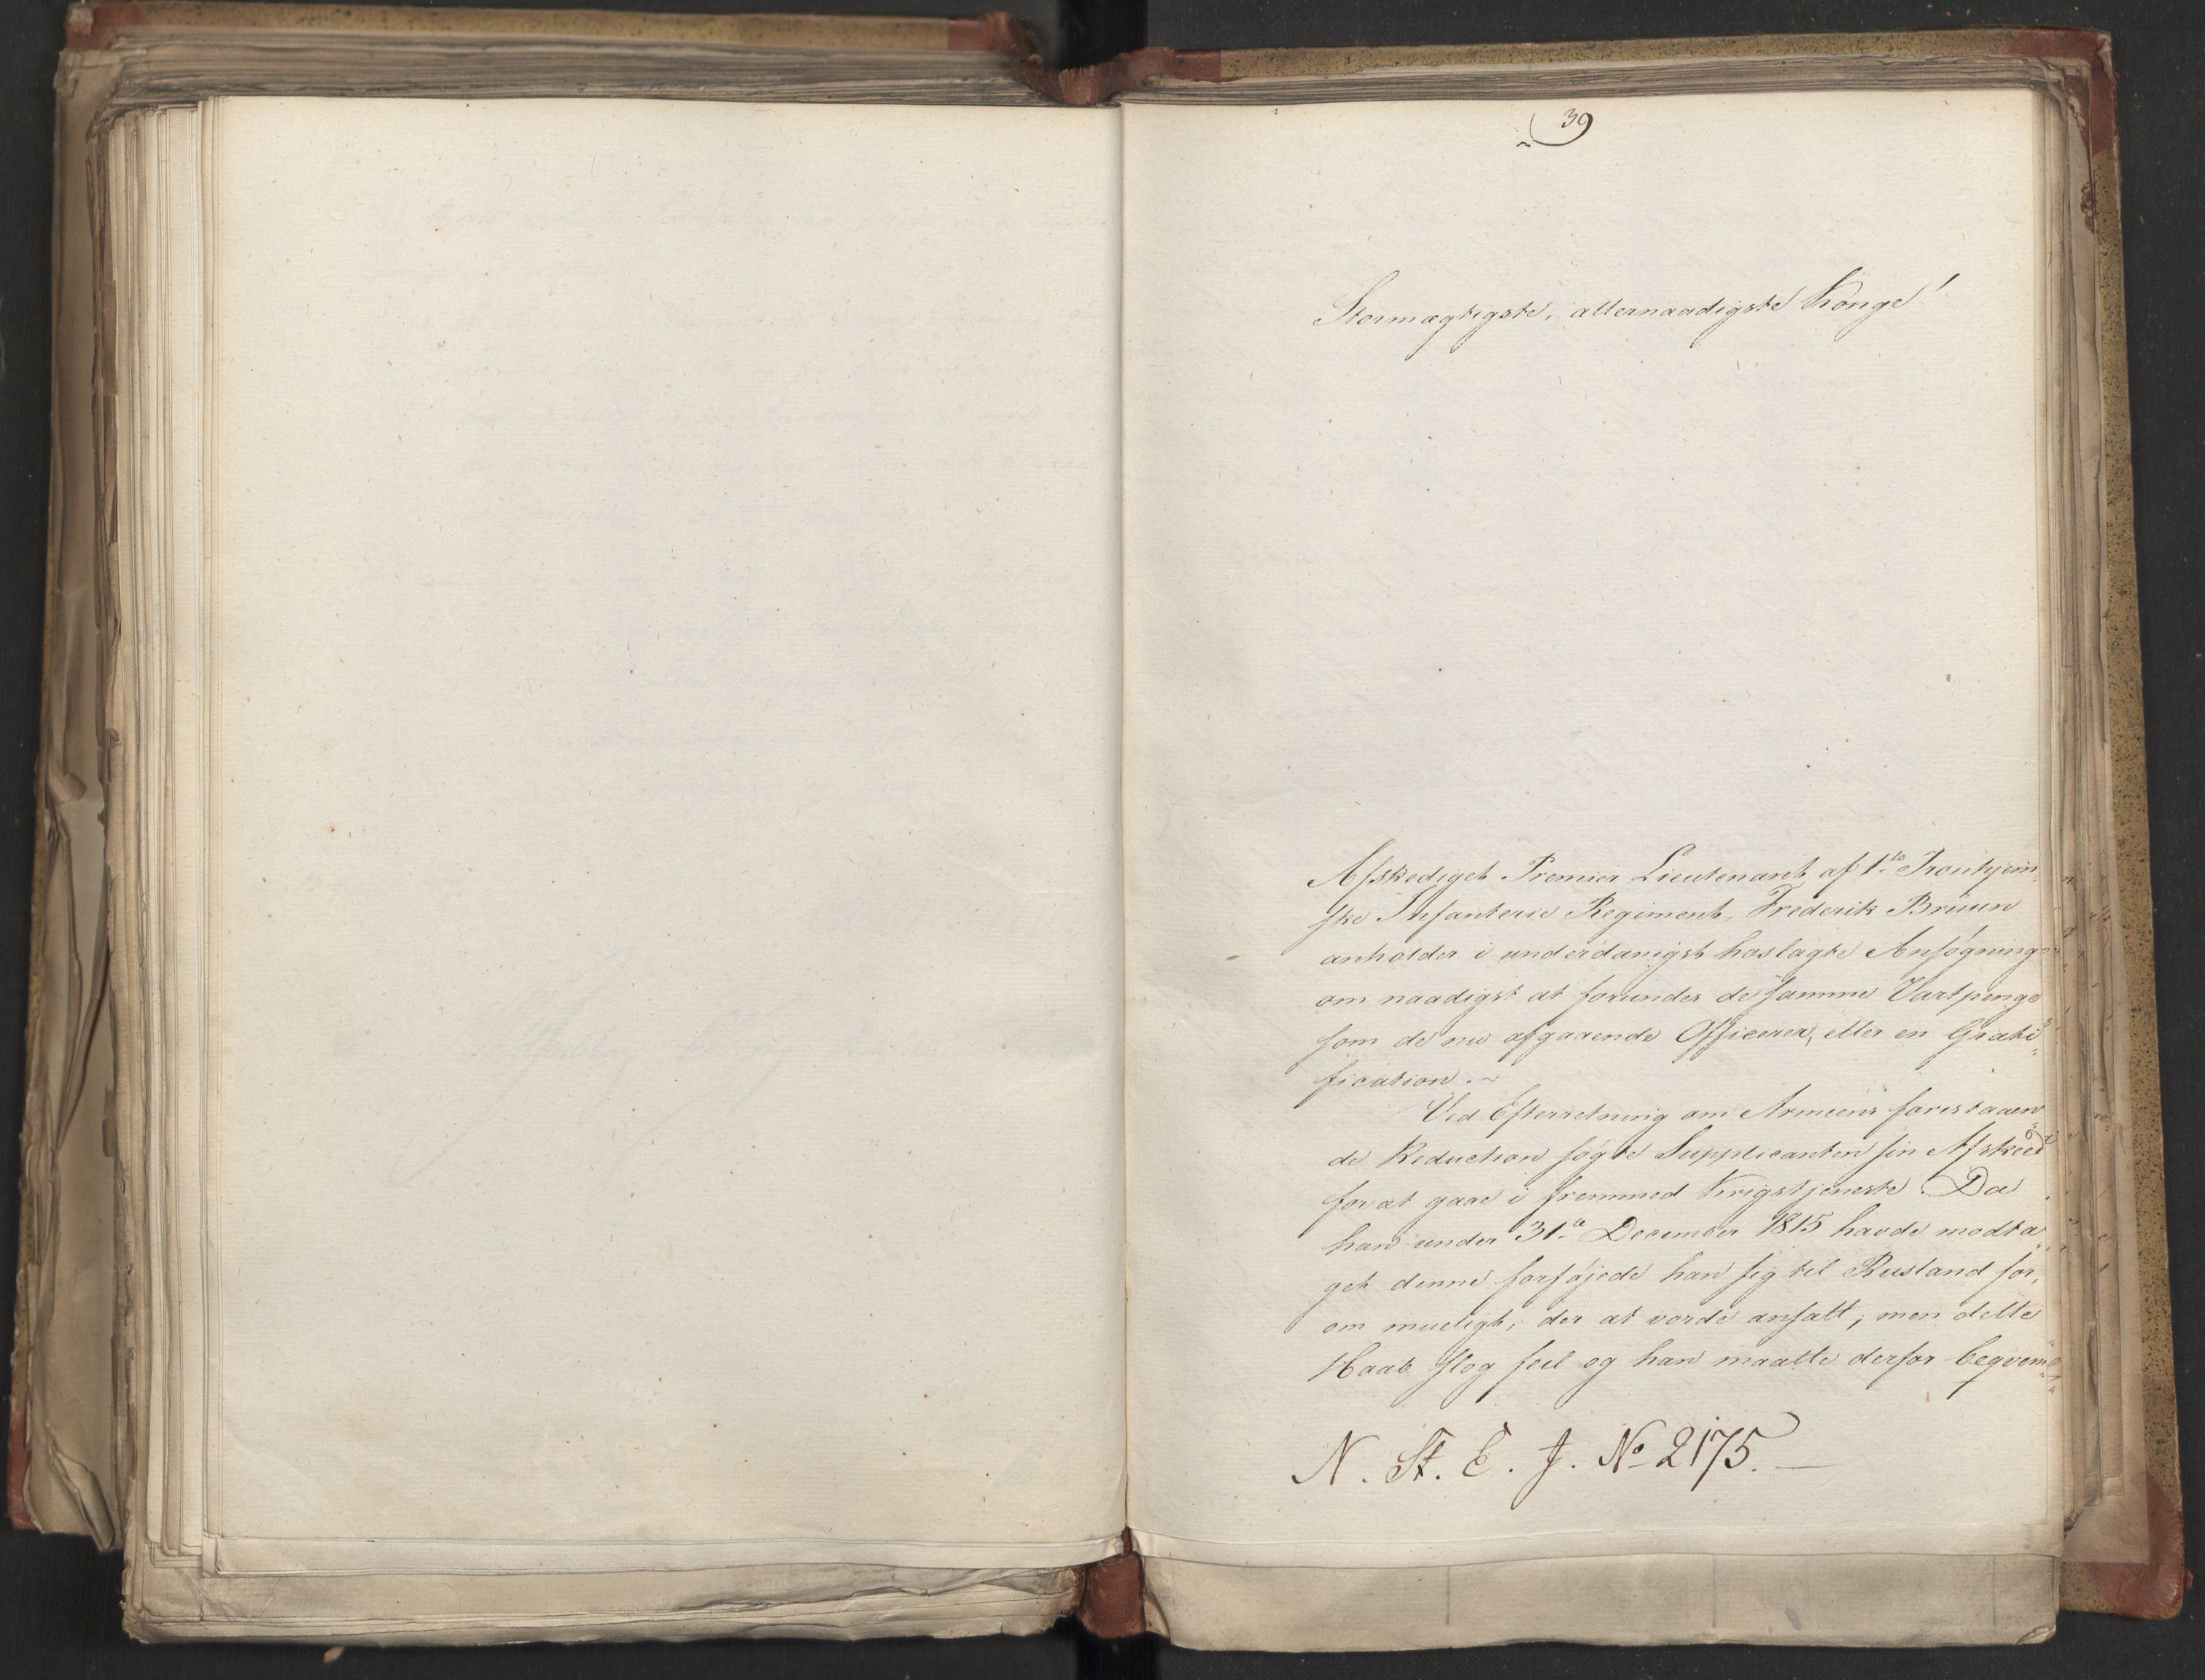 39
Stormægtigste, allernaadigste Konge!
Afskediget Premier Lieutenant af 1te Tronhjem-
ske Infanterie Regiment, Frederik Bruun
anholder i underdanigst hoslagte Ansøgning
om naadigst at forundes de samme Vartpenge
som de nu afgaaende Officerer, eller en Grati-
fication.~
Ved Efterretning om Armeens forestaaen-
de Reduction søgte Supplicanten sin Afskeed
for at gaae i fremmed Krigstjeneste. Da
han under 31te December 1815 havde modta-
get denne forføjede han sig til Rusland for,
om mueligt, der at vorde ansatt; men dette
Haab slog feil og han maatte derfor beqvem-
N. St. E. J. No 2175.—